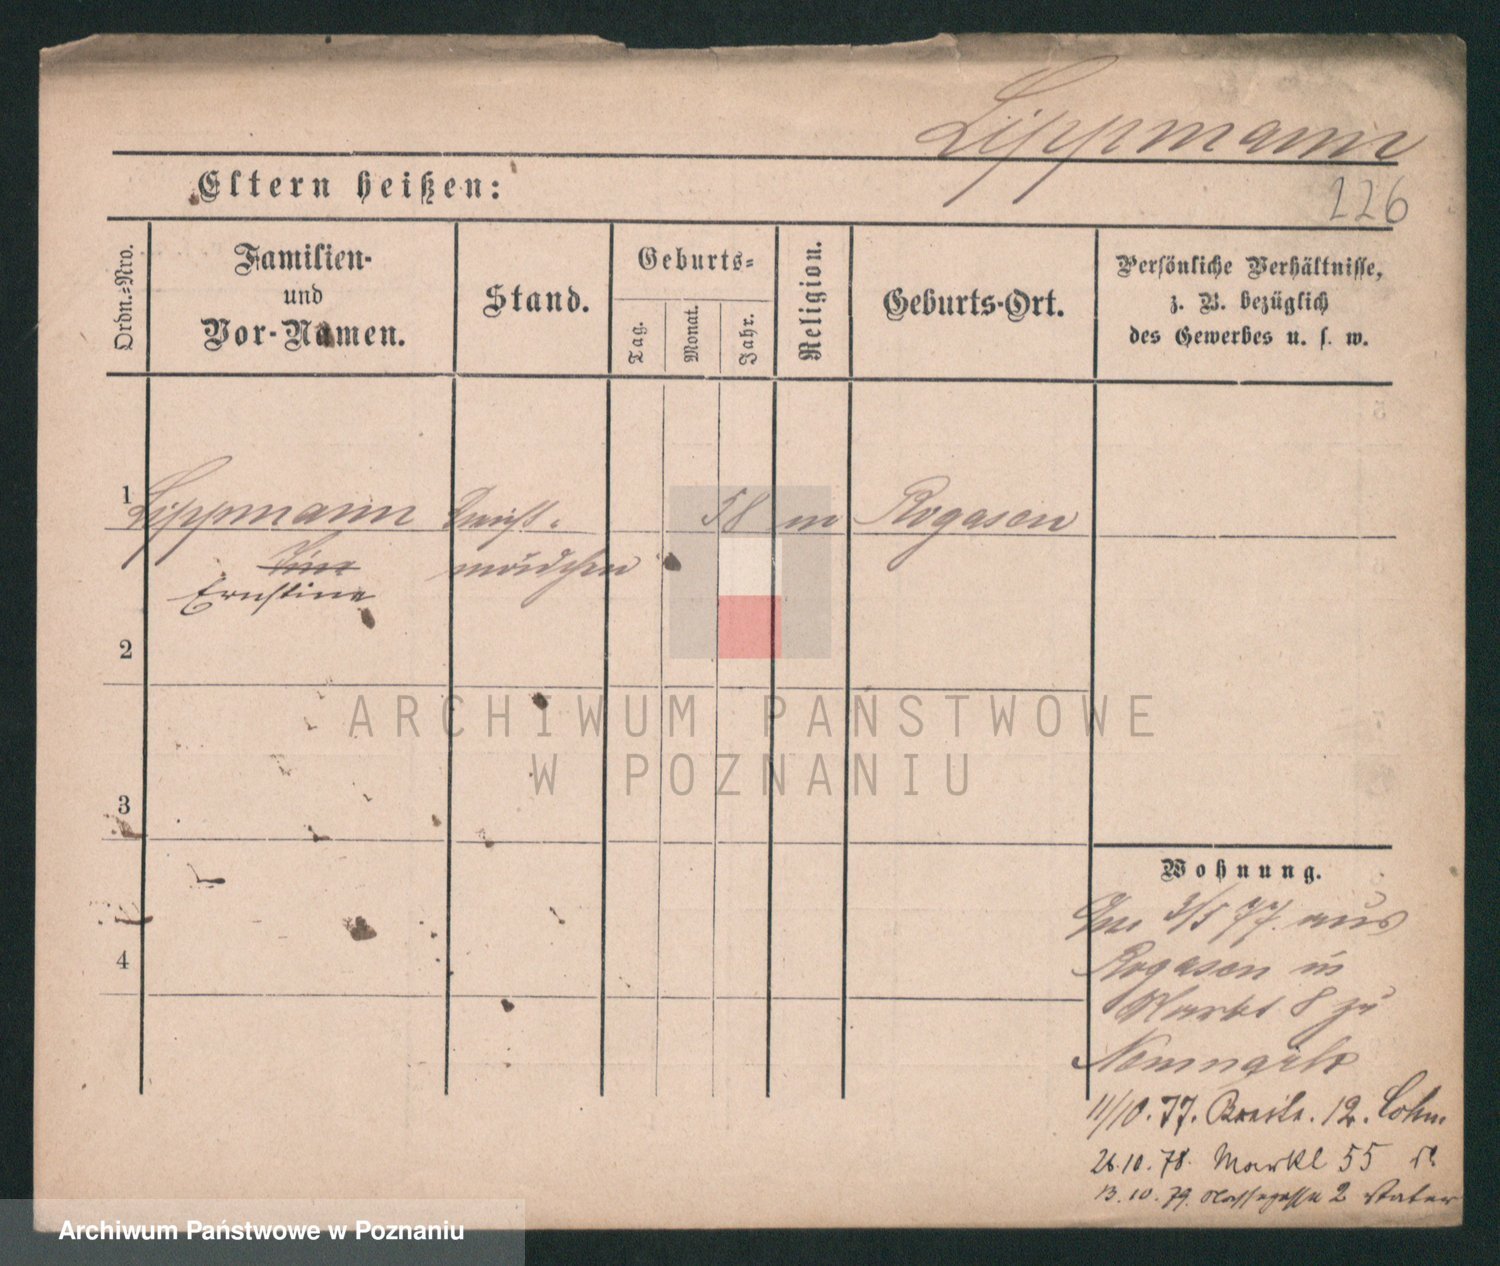 Lippmann
Eltern heißen:
226
Ordn.-Nro.
Familien-
und
Vor-Namen.
Stand.
Geburts-
Tag.
Monat.
Jahr.
Religion.
Geburts-Ort.
Persönliche Verhältnisse,
z. B. bezüglich
des Gewerbes u. s. w.
1
Lippmann
Dienst-
58
m
Rogasen
mädchen
Ernstine
2
ARCHIWUM PAŃSTWOWE
W POZNANIU
3
Wohnung.
3/5 77. aus
Rogasen in
4
Markt 8 zu
11/10. 77. Breite. 12. Cohn.
26.10.78. Markt 55
13.10.79. 2
Archiwum Państwowe w Poznaniu